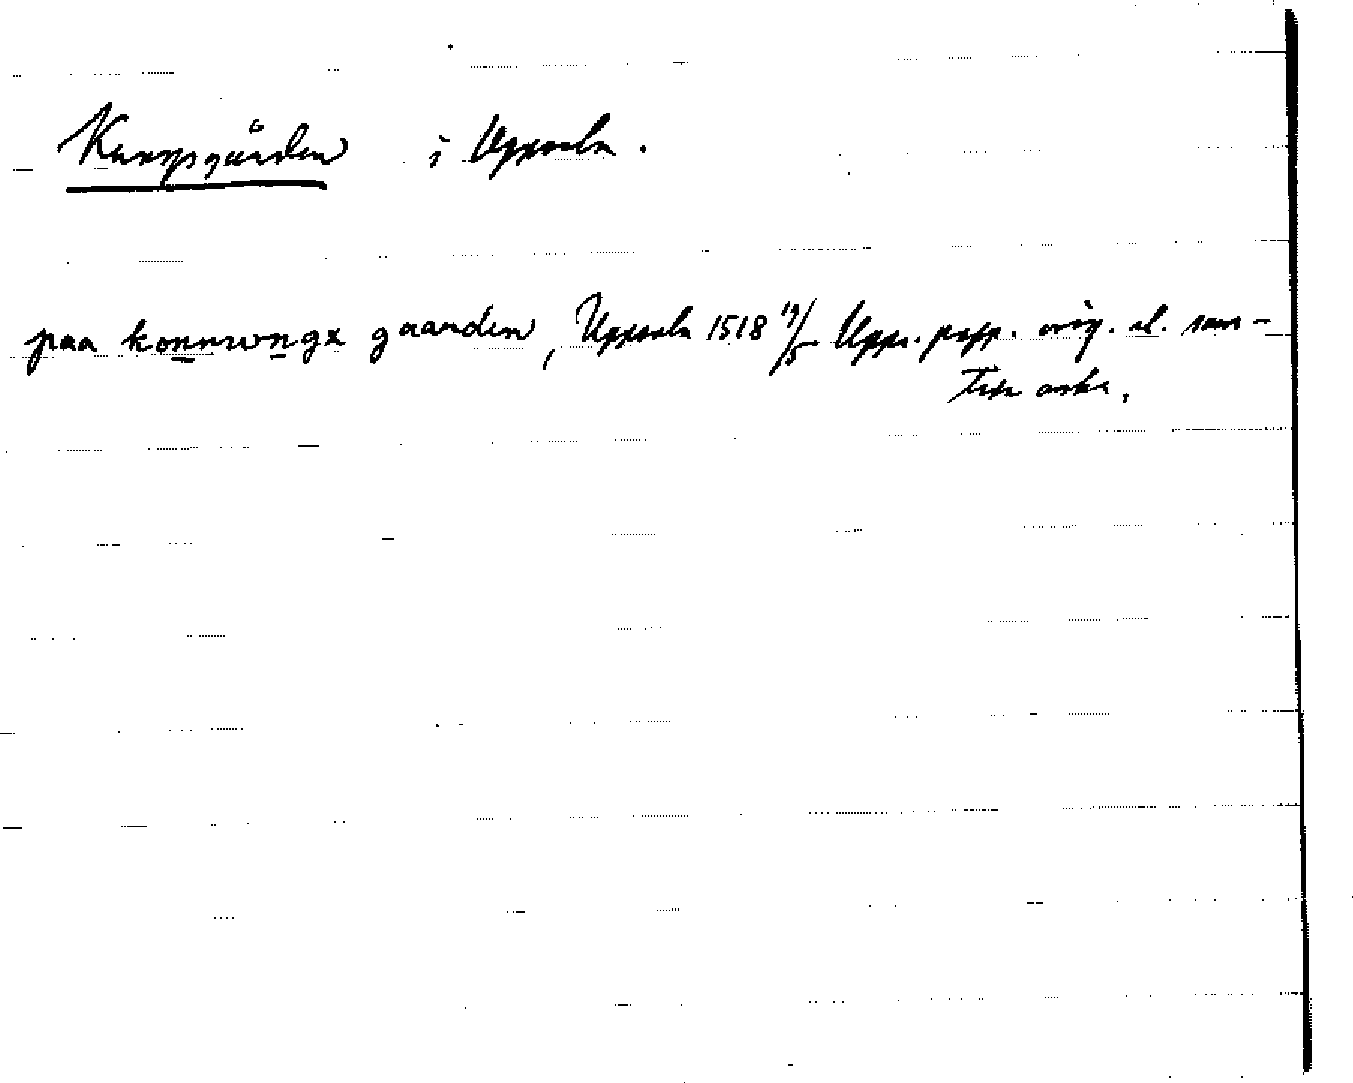 Kungsgården i Uppsala.
paa konnwngx gaarden, Uppsala 1518 19/5 Upps. papp. orig. el. sam-
tida avskr.